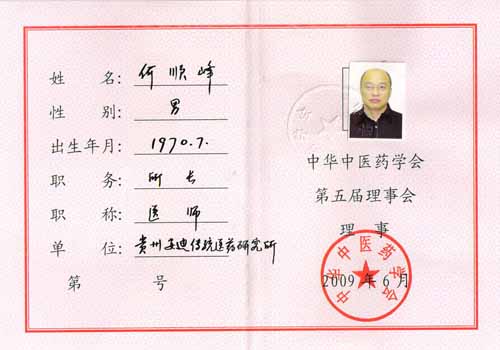 姓 名: 何顺峰
性 别: 男
出生年月: 1970.7.
职 务: 所长
职 称: 医师
单 位: 贵州圣迪传统医药研究所
第 号
中华中医药学会
第五届理事会
理 事
中华中医药学会
2009 年 6 月